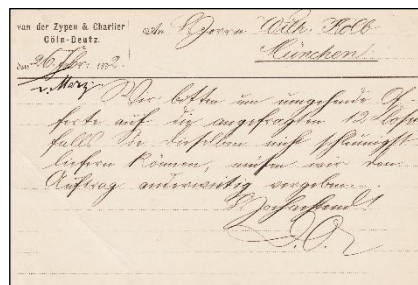 van der Zypen & Charlier
Cöln-Deutz.
An Herrn Wilh. Kolb
München
den 26. Febr. 1892.
v. März
Wir bitten um umgehende Of
ferte auf die angefragten 12
falls Sie dieselben nicht schleunigst
liefern können, müssen wir den
Auftrag anderweitig vergeben.
Hochachtend!